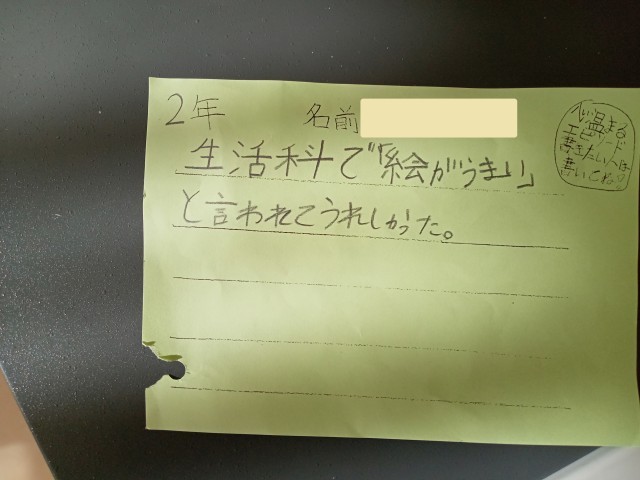 2年 名前
生活科で「絵がうまい」
と言われてうれしかった。
心温まる
エピソード
書きたい人は
書いてね。